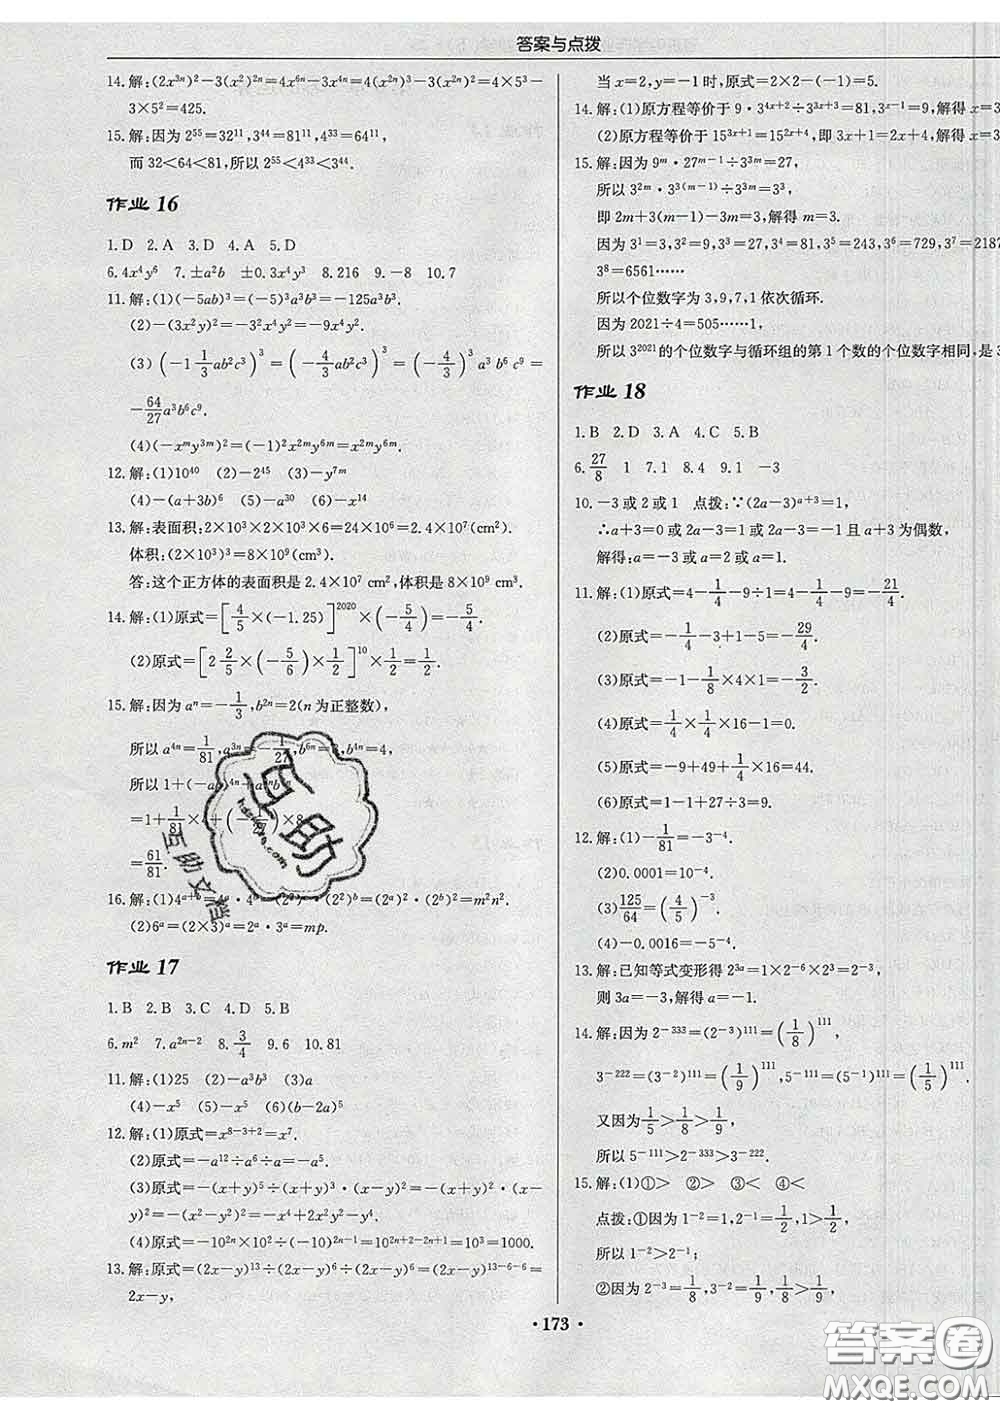 答案与点拨
14.解:(2x³ⁿ)²-3(x²)²ⁿ=4x⁶ⁿ-3x⁴ⁿ=4(x²ⁿ)³-3(x²ⁿ)²=4×5³-
3×5²=425.
15.解:因为 2⁵⁵=32¹¹,3⁴⁴=81¹¹,4³³=64¹¹,
而 32<64<81,所以 2⁵⁵<4³³<3⁴⁴.
作业 16
1.D 2.A 3.D 4.A 5.D
6.4x⁴y⁶ 7.±a²b ±0.3x⁴y³ 8.216 9.-8 10.7
11.解:(1)(-5ab)³=(-5)³a³b³=-125a³b³.
(2)-(3x²y)²=-3²x⁴y²=-9x⁴y².
(3)(-1 1/3 ab²c³)³=(-4/3 ab²c³)³=(-4/3)³a³b⁶c⁹=
-64/27 a³b⁶c⁹.
(4)(-xᵐy³ᵐ)²=(-1)²x²ᵐy⁶ᵐ=x²ᵐy⁶ᵐ.
12.解:(1)10⁴⁰ (2)-2⁴⁵ (3)-y⁷ᵐ
(4)-(a+3b)⁶ (5)-a³⁰ (6)-x¹⁴
13.解:表面积:2×10³×2×10³×6=24×10⁶=2.4×10⁷(cm²).
体积:(2×10³)³=8×10⁹(cm³).
答:这个正方体的表面积是 2.4×10⁷ cm²,体积是 8×10⁹ cm³.
14.解:(1)原式=[4/5×(-1.25)]²⁰²⁰×(-5/4)=-5/4.
(2)原式=[2 2/5×(-5/6)×1/2]¹⁰×1/2=1/2.
15.解:因为 aⁿ=-1/3,b²ⁿ=2(n 为正整数),
所以 a⁴ⁿ=1/81,a³ⁿ=-1/27,b⁶ⁿ=8,b⁴ⁿ=4,
所以 1+(-ab)⁴ⁿ+a³ⁿb⁶ⁿ
=1+1/81×4+(-1/27)×8
=61/81.
16.解:(1)4ᵃ⁺ᵇ=4ᵃ·4ᵇ=(2²)ᵃ·(2²)ᵇ=(2ᵃ)²·(2ᵇ)²=m²n².
(2)6ᵃ=(2×3)ᵃ=2ᵃ·3ᵃ=mp.
作业 17
1.B 2.B 3.C 4.D 5.B
6.m² 7.a²ⁿ⁻² 8.3/4 9.6 10.81
11.解:(1)25 (2)-a³b³ (3)a
(4)-x⁵ (5)-x⁵ (6)(b-2a)⁵
12.解:(1)原式=x⁸⁻³⁺²=x⁷.
(2)原式=-a¹²÷a⁶÷a=-a⁵.
(3)原式=-(x+y)⁵÷(x+y)³·(x-y)²=-(x+y)²·(x-
y)²=-(x²-y²)²=-x⁴+2x²y²-y⁴.
(4)原式=-10²ⁿ×10²÷(-10)²ⁿ⁻¹=10²ⁿ⁺²⁻²ⁿ⁺¹=10³=1000.
13.解:原式=(2x-y)¹³÷(2x-y)⁶÷(2x-y)⁶=(2x-y)¹³⁻⁶⁻⁶=
2x-y,
当 x=2,y=-1 时,原式=2×2-(-1)=5.
14.解:(1)原方程等价于 9·3⁴ˣ⁺²÷3³ˣ⁺³=81,3ˣ⁻¹=9,解得 x=3
(2)原方程等价于 15³ˣ⁺¹=15²ˣ⁺⁴,即 3x+1=2x+4,解得 x=3
15.解:因为 9ᵐ·27ᵐ⁻¹÷3³ᵐ=27,
所以 3²ᵐ·3³⁽ᵐ⁻¹⁾÷3³ᵐ=3³,
即 2m+3(m-1)-3m=3,解得 m=3.
因为 3¹=3,3²=9,3³=27,3⁴=81,3⁵=243,3⁶=729,3⁷=2187
3⁸=6561……
所以个位数字为 3,9,7,1 依次循环.
因为 2021÷4=505……1,
所以 3²⁰²¹ 的个位数字与循环组的第 1 个数的个位数字相同,是 3
作业 18
1.B 2.D 3.A 4.C 5.B
6.27/8 1 7.1 8.4 9.1 -3
10.-3 或 2 或 1 点拨:∵(2a-3)ᵃ⁺³=1,
∴a+3=0 或 2a-3=1 或 2a-3=-1 且 a+3 为偶数,
解得:a=-3 或 a=2 或 a=1.
11.解:(1)原式=4-1/4-9÷1=4-1/4-9=-21/4.
(2)原式=-1/4-3+1-5=-29/4.
(3)原式=-1-1/8×4×1=-3/2.
(4)原式=1/4×1/4×16-1=0.
(5)原式=-9+49+1/4×16=44.
(6)原式=1-1+27÷3=9.
12.解:(1)-1/81=-3⁻⁴.
(2)0.0001=10⁻⁴.
(3)125/64=(4/5)⁻³.
(4)-0.0016=-5⁻⁴.
13.解:已知等式变形得 2³ᵃ=1×2⁻⁶×2³=2⁻³,
则 3a=-3,解得 a=-1.
14.解:因为 2⁻³³³=(2⁻³)¹¹¹=(1/8)¹¹¹,
3⁻²²²=(3⁻²)¹¹¹=(1/9)¹¹¹,5⁻¹¹¹=(5⁻¹)¹¹¹=(1/5)¹¹¹.
又因为 1/5>1/8>1/9,
所以 5⁻¹¹¹>2⁻³³³>3⁻²²².
15.解:(1)①> ②> ③< ④<
点拨:①因为 1⁻²=1,2⁻¹=1/2,1>1/2,
所以 1⁻²>2⁻¹;
②因为 2⁻³=1/8,3⁻²=1/9,1/8>1/9,
·173·
互助
互助文档
答案卷
MXQE.COM